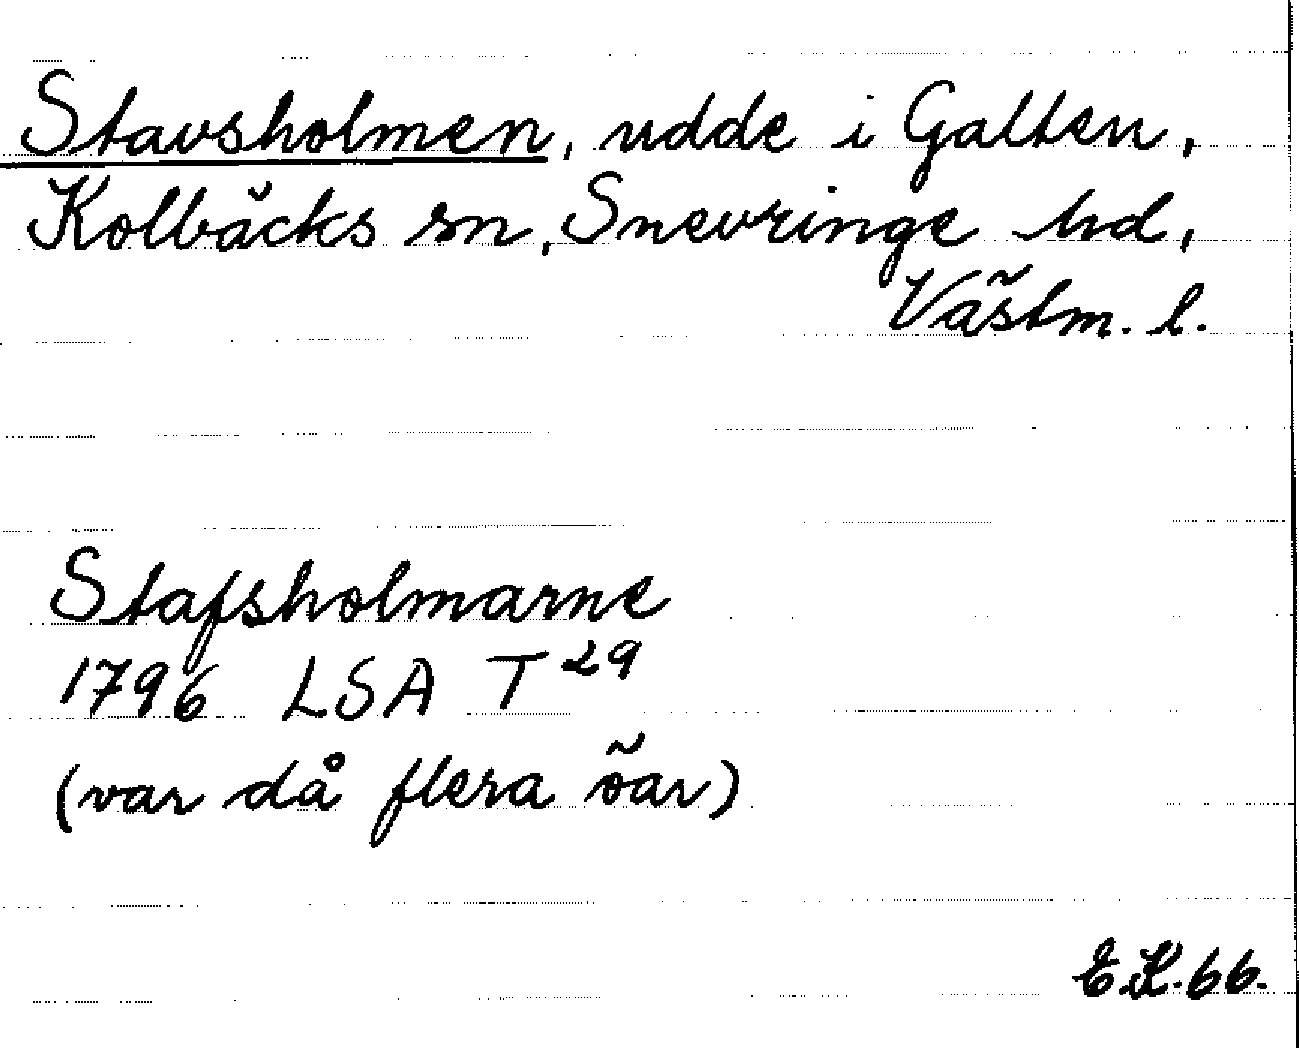 Stavsholmen, udde i Galten,
Kolbäcks sn, Snevringe hd,
Västm. l.
Stafsholmarne
1796 LSA T 29
(var då flera öar)
E.K. 66.